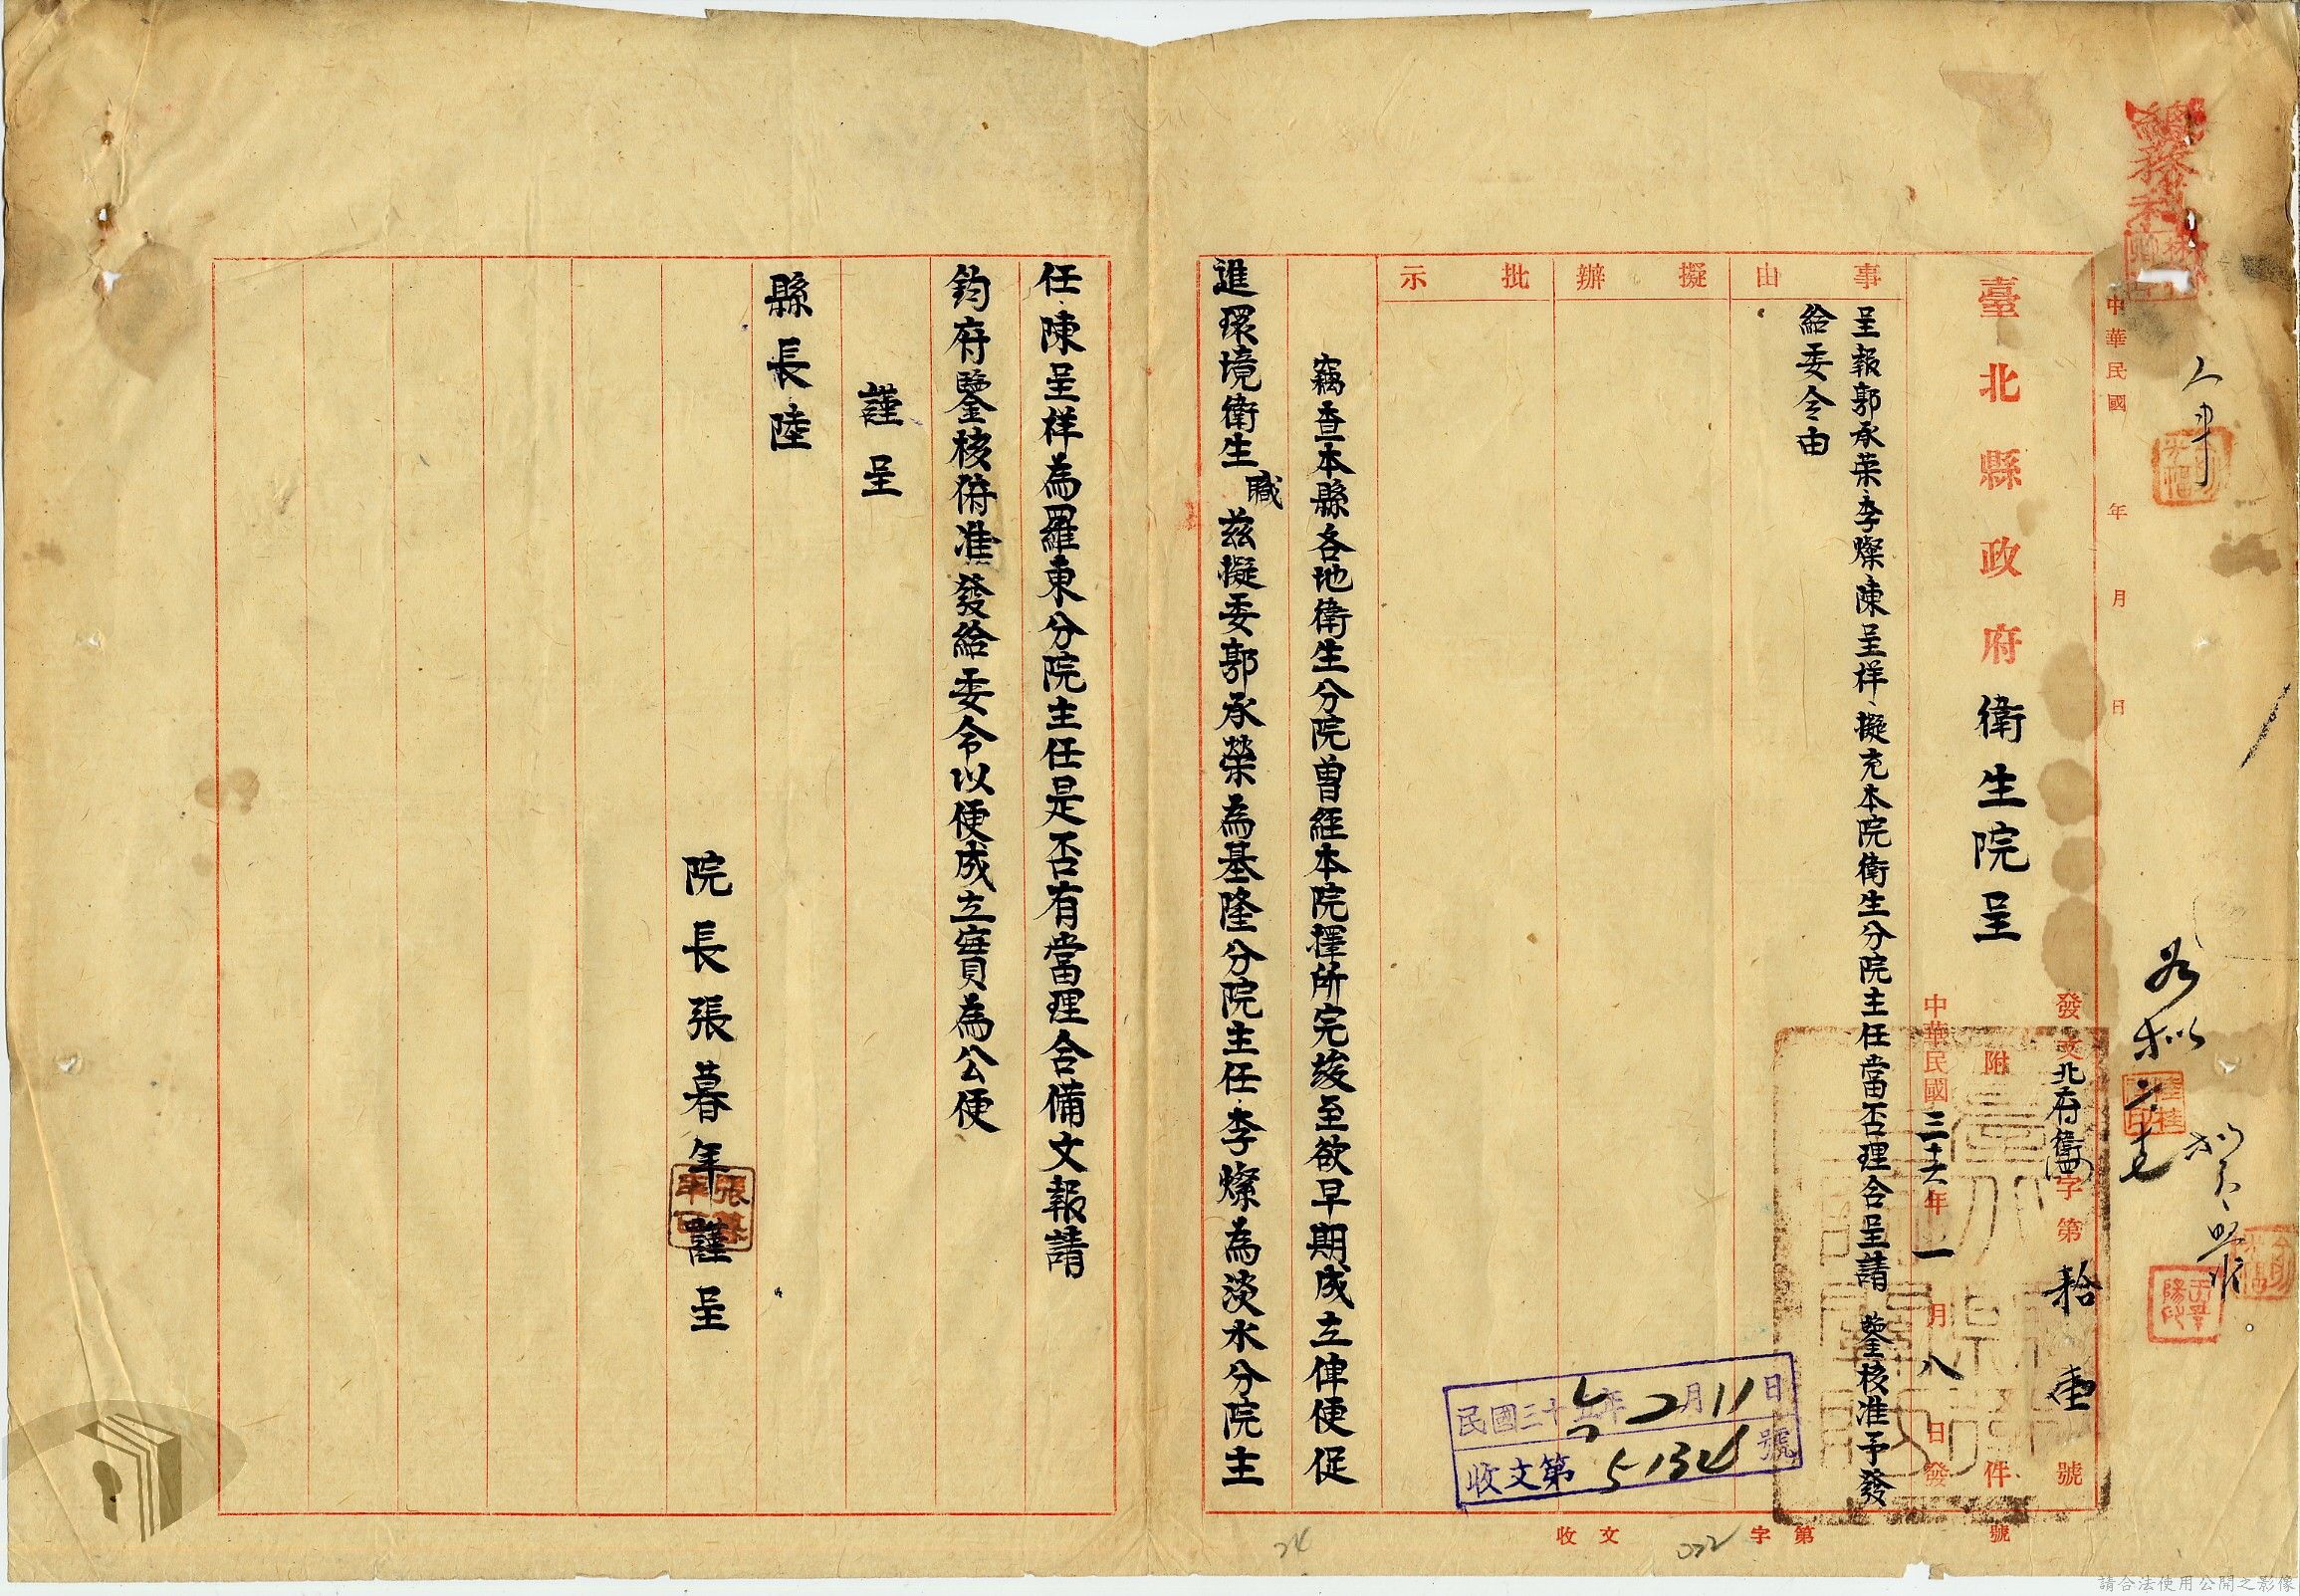 總務科
中華民國　年　月　日
發文北府衛字第拾壹號
臺北縣政府衛生院呈
附件
中華民國三十六年一月八日發
事由
呈報郭承荣、李燦、陳呈祥、擬充本院衛生分院主任當否理合呈請　鑒核准予發
給委令由
擬辦
批示
竊查本縣各地衛生分院曾經本院擇所完竣至欲早期成立俾便促
進環境衛生職茲擬委郭承榮為基隆分院主任、李燦為淡水分院主
任、陳呈祥為羅東分院主任是否有當理合備文報請
鈞府鑒核俯准發給委令以便成立實為公便
謹呈
縣長陸
院長張暮年謹呈
民國三十五年2月11日
收文第5132號
收文　字第　號
請合法使用公開之影像